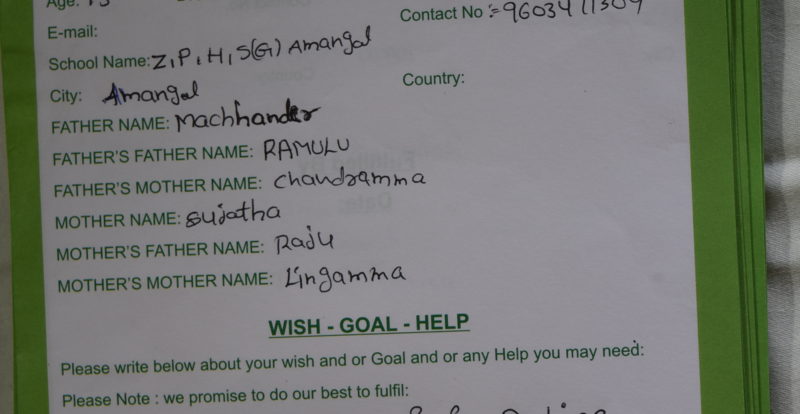 Age:
Contact No :-
E-mail:
School Name: Z,P,H,S(G) Amangal
City: Amangal Country:
FATHER NAME: Machhander
FATHER'S FATHER NAME: RAMULU
FATHER'S MOTHER NAME: Chandramma
MOTHER NAME: Sujatha
MOTHER'S FATHER NAME: Raju
MOTHER'S MOTHER NAME: Lingamma
WISH - GOAL - HELP
Please write below about your wish and or Goal and or any Help you may need:
Please Note : we promise to do our best to fulfil: